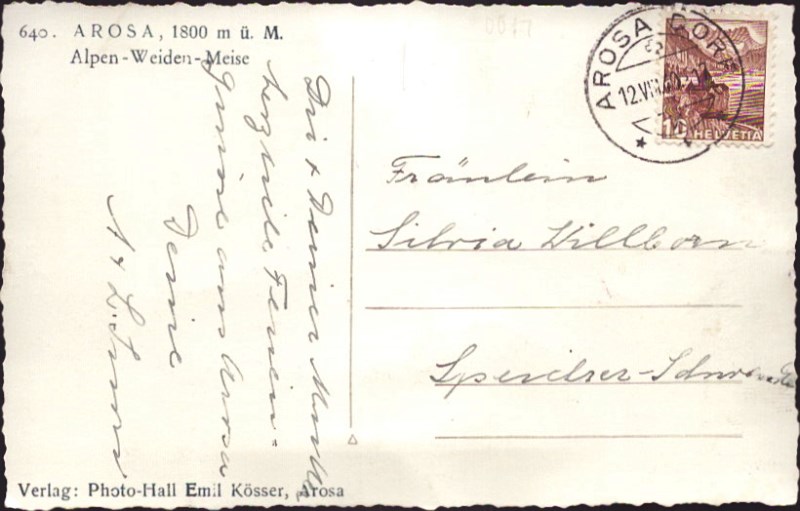 640. AROSA, 1800 m ü. M.
Alpen-Weiden-Meise
Dir & Deiner Mutter
herzliche Ferien-
grüsse aus Arosa
Deine
A & L.
AROSA DORF
12.VIII.40
10
HELVETIA
Fräulein
Silvia Willborn
Speicher-Schwendi
Verlag: Photo-Hall Emil Kösser, Arosa